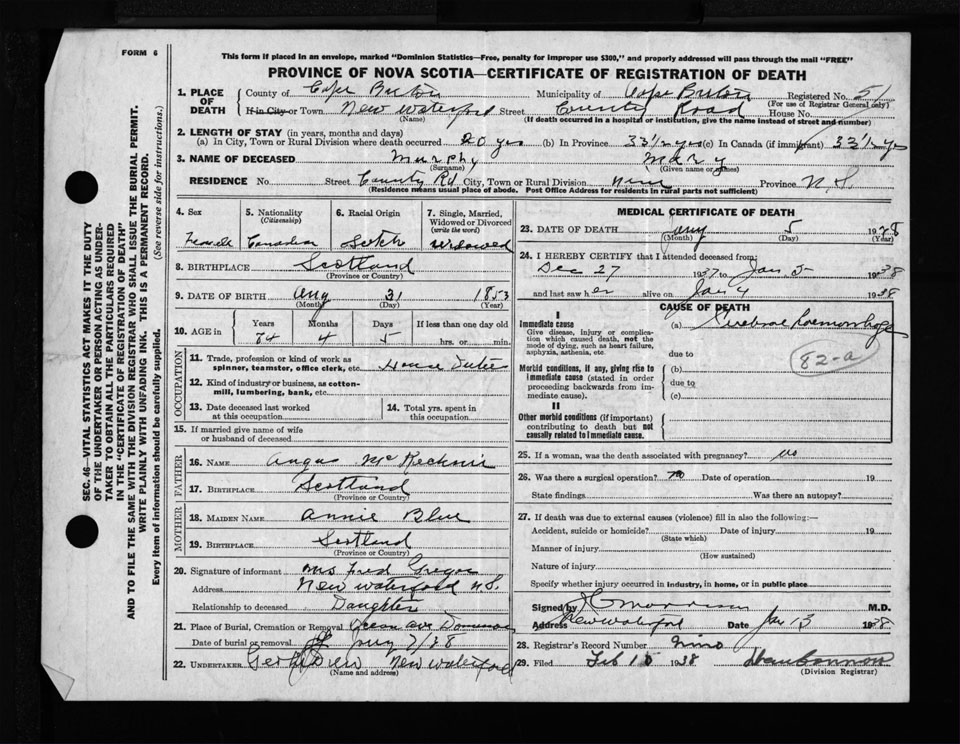 FORM 6
This form if placed in an envelope, marked "Dominion Statistics—Free, penalty for improper use $300," and properly addressed will pass through the mail "FREE"
PROVINCE OF NOVA SCOTIA—CERTIFICATE OF REGISTRATION OF DEATH
SEC. 46—VITAL STATISTICS ACT MAKES IT THE DUTY
OF THE UNDERTAKER OR PERSON ACTING AS UNDER-
TAKER TO OBTAIN ALL THE PARTICULARS REQUIRED
IN THE "CERTIFICATE OF REGISTRATION OF DEATH"
AND TO FILE THE SAME WITH THE DIVISION REGISTRAR WHO SHALL ISSUE THE BURIAL PERMIT.
WRITE PLAINLY WITH UNFADING INK. THIS IS A PERMANENT RECORD.
Every item of information should be carefully supplied. (See reverse side for instructions.)
1. PLACE OF DEATH County of Cape Breton Municipality of Cape Breton Registered No. 51
(For use of Registrar General only)
If in City or Town New Waterford Street County Road House No.
(Name) (If death occurred in a hospital or institution, give the name instead of street and number)
2. LENGTH OF STAY (in years, months and days)
(a) In City, Town or Rural Division where death occurred 20 yrs (b) In Province 33½ yrs (c) In Canada (if immigrant) 33½ yrs
3. NAME OF DECEASED Murphy Mary
(Surname) (Given name or names)
RESIDENCE No. Street County Rd City, Town or Rural Division Province N.S.
(Residence means usual place of abode. Post Office Address for residents in rural parts not sufficient)
4. Sex Female
5. Nationality (Citizenship) Canadian
6. Racial Origin Scotch
7. Single, Married, Widowed or Divorced (write the word) widowed
8. BIRTHPLACE Scotland
(Province or Country)
9. DATE OF BIRTH Aug 31 1853
(Month) (Day) (Year)
10. AGE in Years Months Days If less than one day old
84 4 5 hrs. or min.
OCCUPATION
11. Trade, profession or kind of work as
spinner, teamster, office clerk, etc. House Duties
12. Kind of industry or business, as cotton-
mill, lumbering, bank, etc.
13. Date deceased last worked
at this occupation
14. Total yrs. spent in
this occupation
15. If married give name of wife
or husband of deceased
FATHER
16. NAME Angus McKechnie
17. BIRTHPLACE Scotland
(Province or Country)
MOTHER
18. MAIDEN NAME Annie Blue
19. BIRTHPLACE Scotland
(Province or Country)
20. Signature of informant Mrs Fred Gregor
Address New Waterford N.S.
Relationship to deceased Daughter
21. Place of Burial, Cremation or Removal Ocean Ave
Date of burial or removal Jany 7/38
22. UNDERTAKER New Waterford
(Name and address)
MEDICAL CERTIFICATE OF DEATH
23. DATE OF DEATH Jany 5 1938
(Month) (Day) (Year)
24. I HEREBY CERTIFY that I attended deceased from:
Dec 27 1937 to Jan 5 1938
and last saw her alive on Jan 4 1938
CAUSE OF DEATH
I
Immediate cause (a) Cerebral haemorrhage
Give disease, injury or complica-
tion which caused death, not the
mode of dying, such as heart failure,
asphyxia, asthenia, etc. due to
82-a
Morbid conditions, if any, giving rise to (b)
immediate cause (stated in order due to
proceeding backwards from im-
mediate cause). (c)
II
Other morbid conditions (if important)
contributing to death but not
causally related to immediate cause.
25. If a woman, was the death associated with pregnancy? no
26. Was there a surgical operation? no Date of operation 19
State findings Was there an autopsy?
27. If death was due to external causes (violence) fill in also the following:—
Accident, suicide or homicide? Date of injury 19
(State which)
Manner of injury
(How sustained)
Nature of injury
Specify whether injury occurred in industry, in home, or in public place
Signed by Morrison M.D.
Address New Waterford Date Jan 13 1938
28. Registrar's Record Number Nine
29. Filed Feb 15 1938
(Division Registrar)